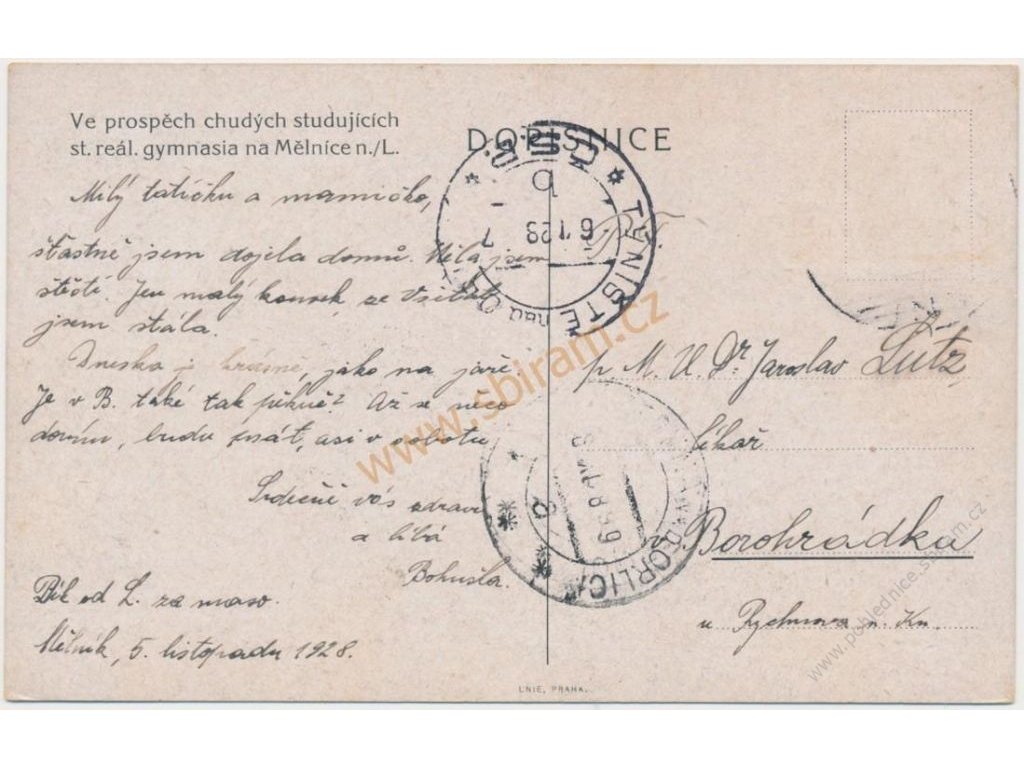 Ve prospěch chudých studujících
st. reál. gymnasia na Mělníce n./L.
DOPISNICE
Milý tatíčku a mamičko,
šťastně jsem dojela domů. Měla jsem
štěstí. Jen malý kousek ze Všetat
jsem stála.
Dneska je krásně, jako na jaře.
Je v B. také tak pěkně? Až se něco
dovím, budu psát, asi v sobotu
Srdečně vás zdraví
a líbá
Bohuša.
Dík od L. za maso.
Mělník, 5. listopadu 1928.
P. T.
p M. U. Dr. Jaroslav Lutz
lékař
v Borohrádku
u Rychnova n. Kn.
ČSR
TÝNIŠTĚ
nad
b
6 28
ORLICÍ
UNIE, PRAHA.
www.sbiram.cz
www.pohlednice.sbiram.cz